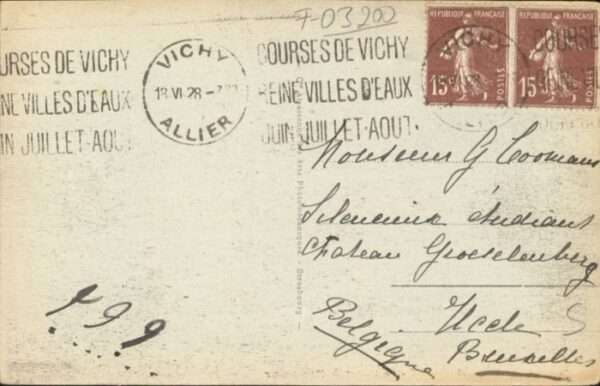 F-03200
COURSES DE VICHY
REINE VILLES D'EAUX
JUIN JUILLET-AOUT
VICHY
18 VI 28
ALLIER
COURSES DE VICHY
REINE VILLES D'EAUX
JUIN JUILLET-AOUT
REPUBLIQUE FRANÇAISE
15c
POSTES
REPUBLIQUE FRANÇAISE
15c
POSTES
VICHY
COURSES
Monsieur G Coomans
étudiant
Chateau Groeselenberg
Uccle
Bruxelles
Belgique
Strasbourg